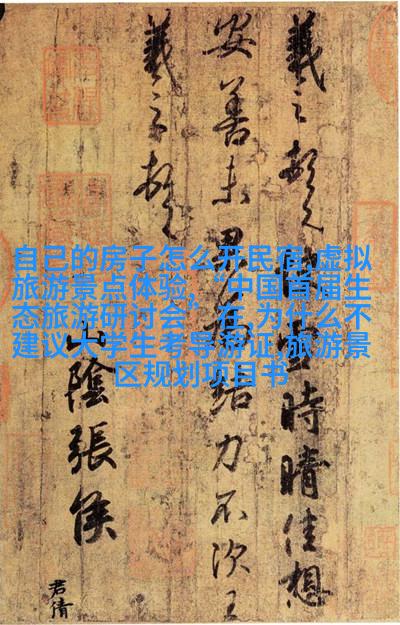 自己的房子怎么开民宿,虚拟
旅游景点体验，“中国首届生
态旅游研讨会”在,为什么不
建议大学生考导游证,旅游景
区规划项目书
羲之頓首快雪時晴佳想
安善未果為結力不次王
羲之頓首
山陰張侯
君倩